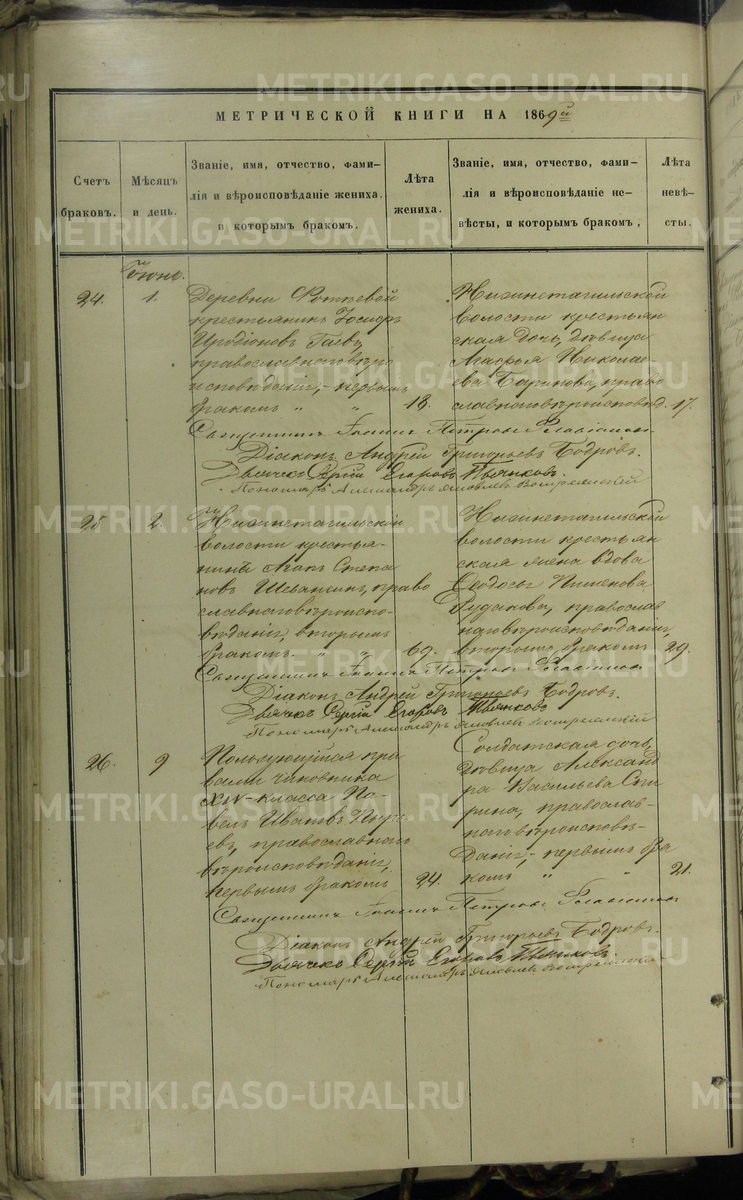 МЕТРИЧЕСКОЙ КНИГИ НА 1869й
Счетъ браковъ.
Мѣсяцъ и день.
Званіе, имя, отчество, фами-
лія и вѣроисповѣданіе жениха.
и которымъ бракомъ.
Лѣта жениха.
Званіе, имя, отчество, фами-
лія и вѣроисповѣданіе не-
вѣсты, и которымъ бракомъ,
Лѣта невѣ-
сты.
24.
1.
Деревни
крестьянинъ Іосифъ
Иродіоновъ Гаевъ,
православнаго вѣро
исповѣданія, первымъ
бракомъ " "
18.
Нижнетагильской
волости крестьян
ская дочь, дѣвица
Агафья Никола
ева Баринова, право
славнаго вѣроисповѣд.
17.
Священникъ Іоаннъ Петровъ
Діаконъ Андрей Григорьевъ Бодровъ.
Дьячекъ Сергій Егоровъ
Пономарь Александръ Яковлевъ
25
2.
Нижнетагильской
волости крестья-
нинъ Агапъ Степа
новъ право
славнаго вѣроиспо-
вѣданія, вторымъ
бракомъ " "
69.
Нижнетагильской
волости крестьян
ская жена вдова
Ѳеодосья Пименова
Рудакова, православ
наго вѣроисповѣданія,
вторымъ бракомъ
29.
Священникъ Іоаннъ Петровъ
Діаконъ Андрей Григорьевъ Бодровъ.
Дьячекъ Сергій Егоровъ
Пономарь Александръ Яковлевъ
26.
9
Пользующійся пра
вами чиновника
XIV-класса Па-
велъ Ивановъ
евъ, православнаго
вѣроисповѣданія,
первымъ бракомъ
24.
Солдатская дочь,
дѣвица Александ
ра Васильева Спи
рина, православ-
наго вѣроисповѣ-
данія, первымъ бра
комъ " "
21.
Священникъ Іоаннъ Петровъ
Діаконъ Андрей Григорьевъ Бодровъ.
Дьячекъ Сергій Егоровъ
Пономарь Александръ Яковлевъ
METRIKI.GASO-URAL.RU